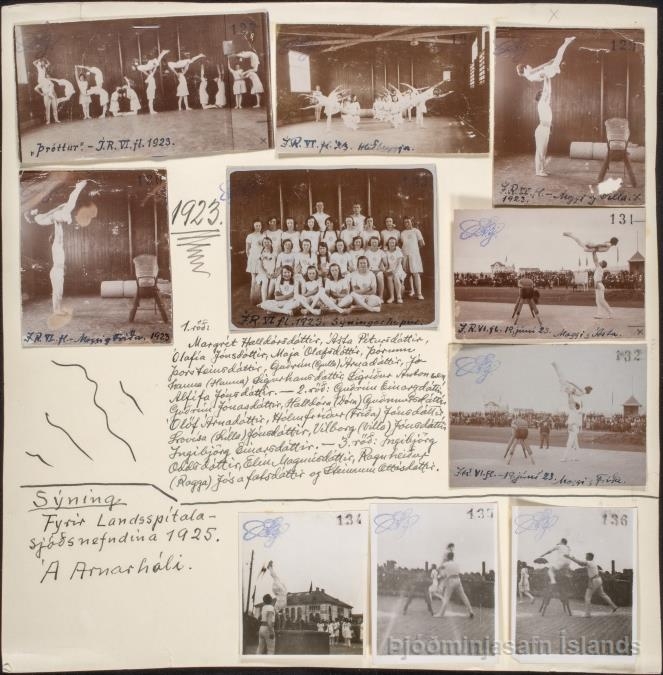 „Þróttur". - Í.R. VI. fl. 1923.
Í.R. VI. fl.
Í.R. VI. fl. - Maggi og Villa.
1923.
Í.R. VI fl. - Maggi og Fríða. 1923
1923.
Í.R. VI. fl. 1923. Sýningarhópur.
131
Í.R. VI. fl. 19. júní 23. Maggi & Ásta.
132
Í.R. VI. fl. - 19. júní 23. Maggi & Fríða.
1. röð:
Margrét Halldórsdóttir, Ásta Pétursdóttir,
Ólafía Jónsdóttir, Maja Ólafsdóttir, Þórunn
Þorsteinsdóttir, Guðrún (Gulla) Árnadóttir, Jó-
hanna (Hanna) Sigurhansdóttir, Sigríður
Allífa Jónsdóttir. — 2. röð: Guðrún Einarsdóttir,
Guðrún Jónasdóttir, Halldóra (Dóra) Guðmundsdóttir,
Ólöf Árnadóttir, Hólmfríður (Fríða) Jónsdóttir,
Lovísa Jónsdóttir, Vilborg (Villa) Jónsdóttir,
Ingibjörg Einarsdóttir. — 3. röð: Ingibjörg
Oddsdóttir, Elín Magnúsdóttir, Ragnheiður
(Ragga) Jósafatsdóttir og Steinunn Ottósdóttir.
Sýning
Fyrir Landsspítala-
sjóðsnefndina 1925.
Á Arnarhóli.
134
135
136
Þjóðminjasafn Íslands